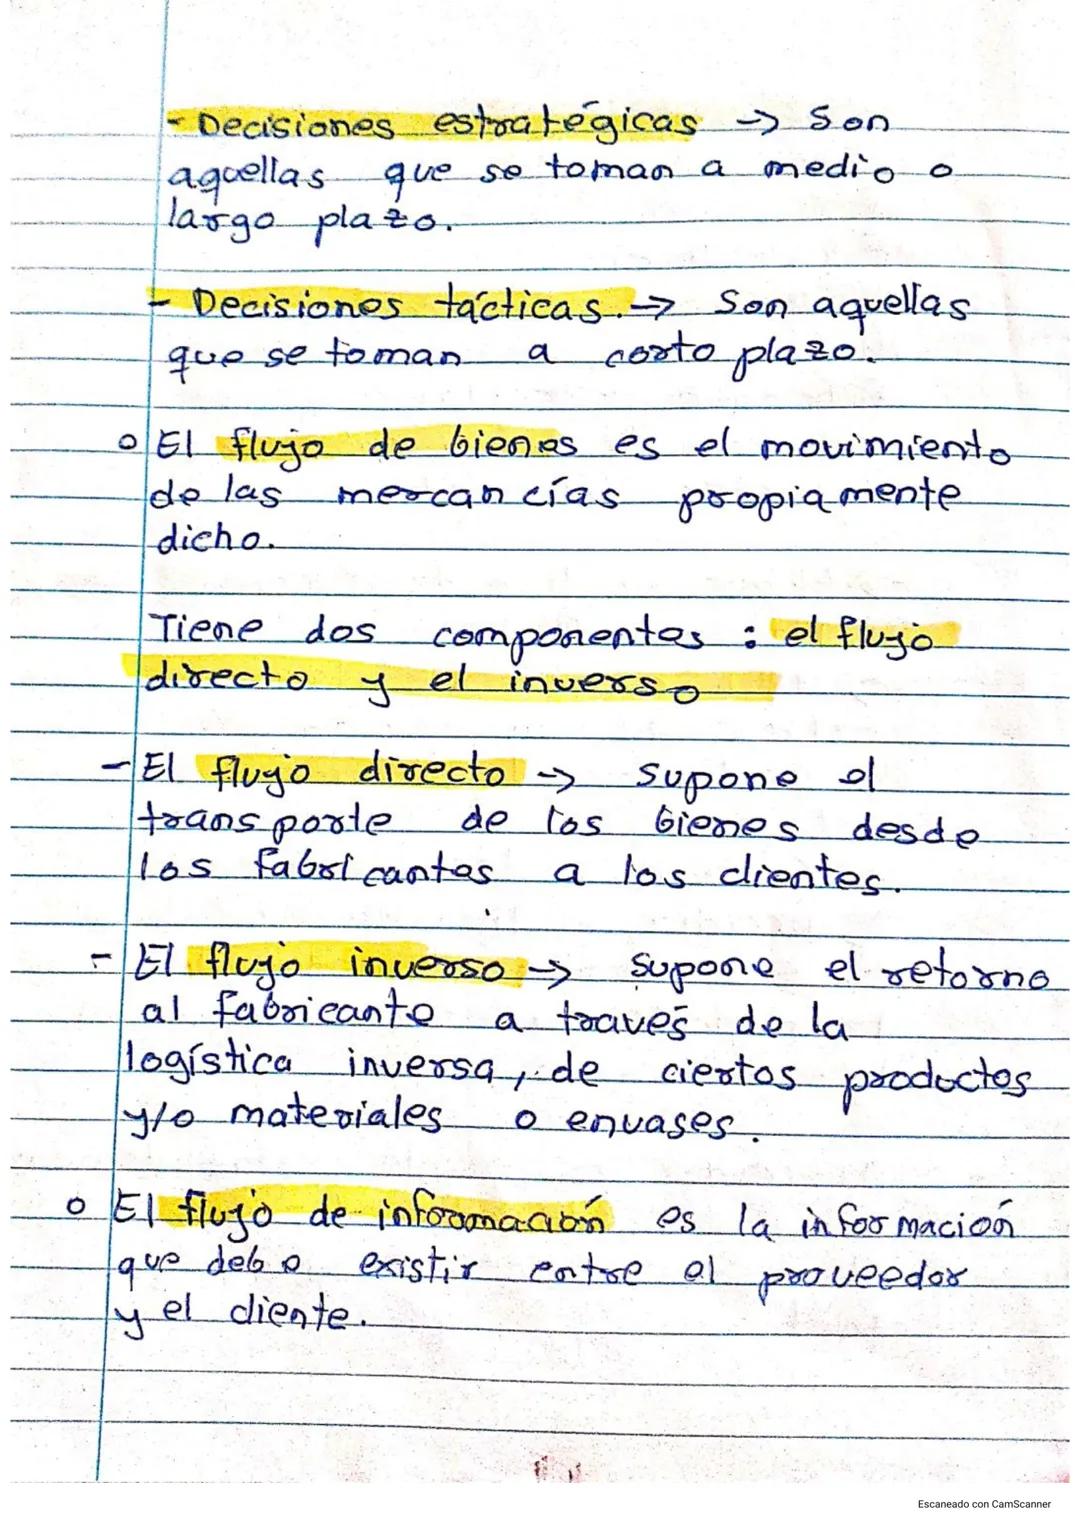 - Decisiones estratégicas → Son
aquellas que se toman a medio o
largo plazo.
- Decisiones tácticas. → Son aquellas
que se toman a corto plazo.
o El flujo de bienes es el movimiento
de las mercancías propiamente
dicho.
Tiene dos componentes : el flujo
directo y el inverso
- El flujo directo → supone el
transporte de los bienes desde
los fabricantes a los clientes.
- El flujo inverso → supone el retorno
al fabricante a través de la
logística inversa, de ciertos productos
y/o materiales o envases.
o El flujo de información es la información
que debe existir entre el proveedor
y el cliente.
Escaneado con CamScanner